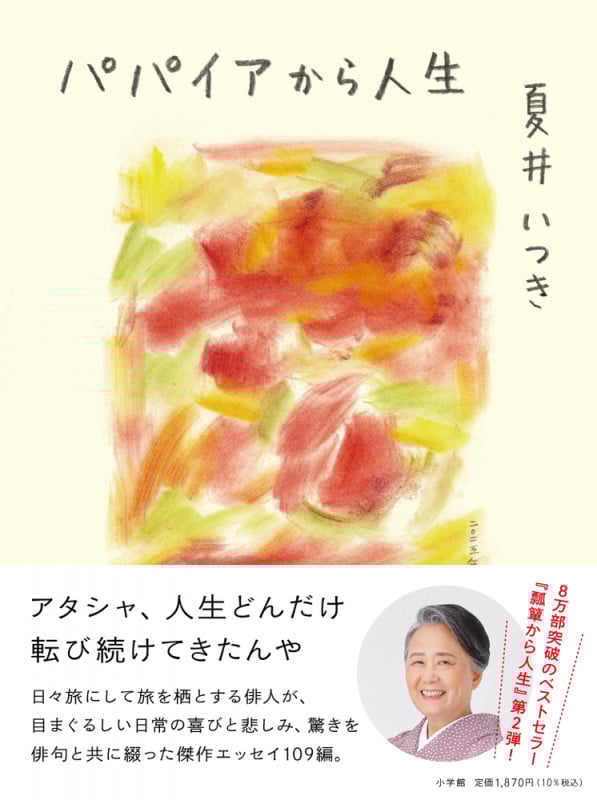 パパイアから人生
夏井いつき
二〇二五
アタシャ、人生どんだけ
転び続けてきたんや
日々旅にして旅を栖とする俳人が、
目まぐるしい日常の喜びと悲しみ、驚きを
俳句と共に綴った傑作エッセイ109編。
8万部突破のベストセラー
『瓢簞から人生』第2弾!
小学館 定価1,870円(10%税込)